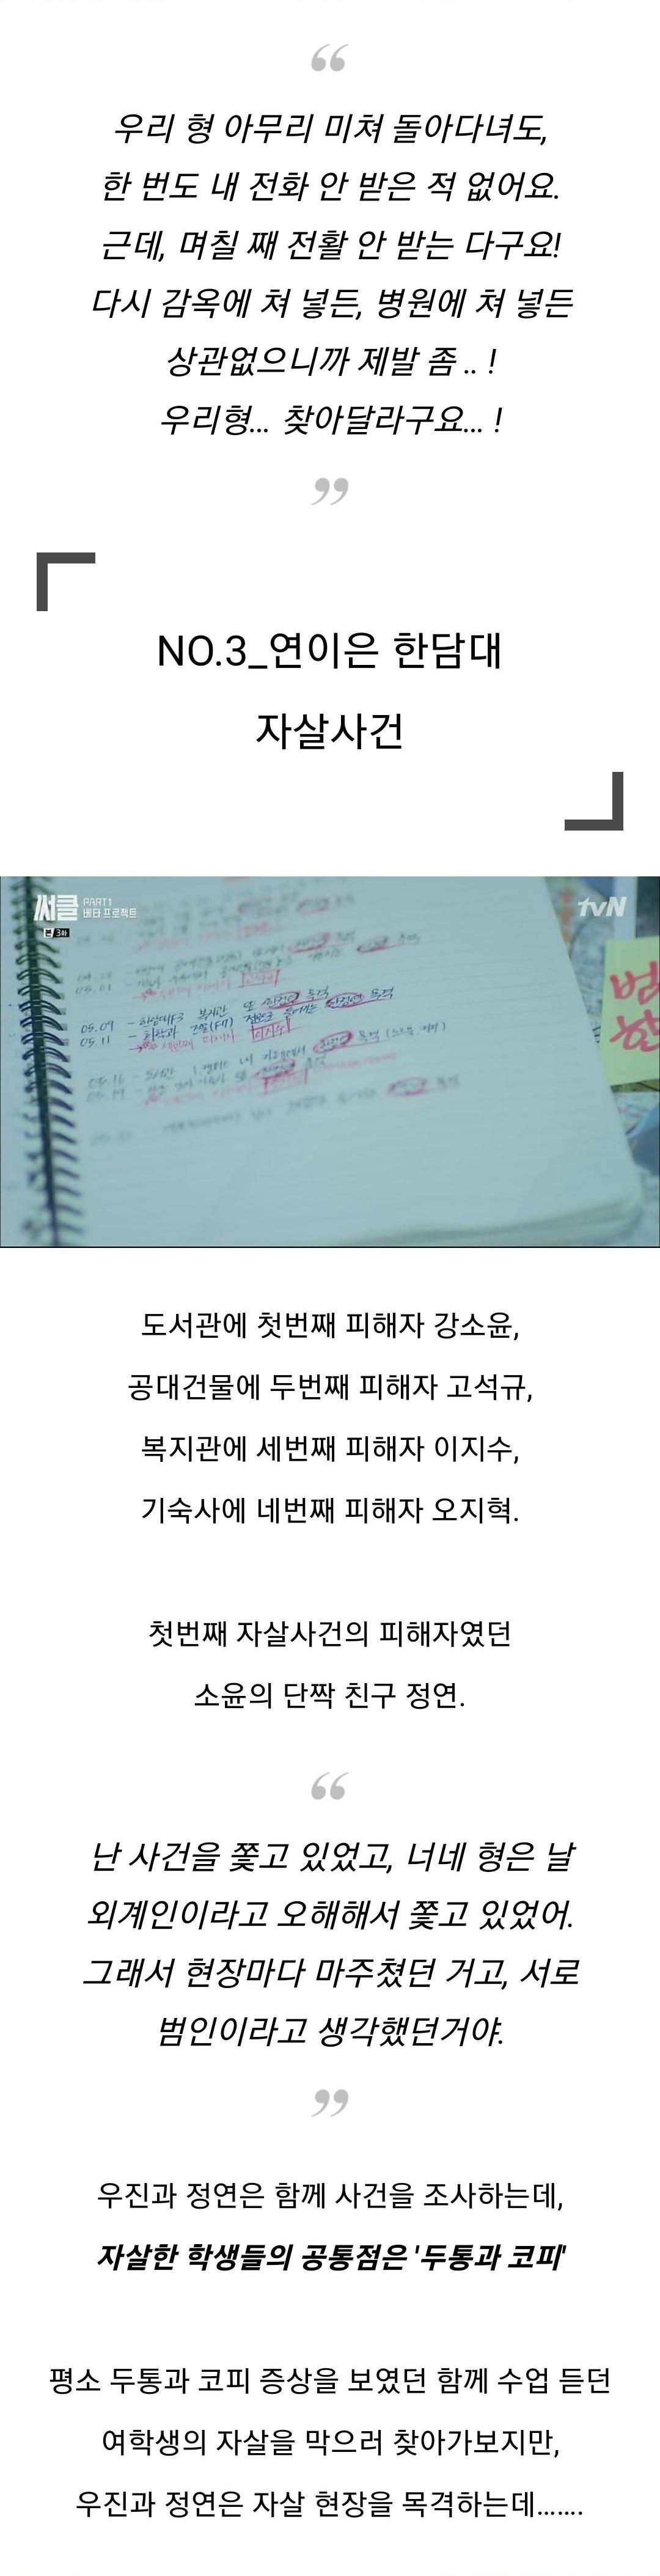 “
우리 형 아무리 미쳐 돌아다녀도,
한 번도 내 전화 안 받은 적 없어요.
근데, 며칠 째 전활 안 받는 다구요!
다시 감옥에 쳐 넣든, 병원에 쳐 넣든
상관없으니까 제발 좀 .. !
우리형... 찾아달라구요... !
”
NO.3_연이은 한담대
자살사건
써클 PART1
베타 프로젝트
본 3화
tvN
05.01
05.07
05.11
범
한
도서관에 첫번째 피해자 강소윤,
공대건물에 두번째 피해자 고석규,
복지관에 세번째 피해자 이지수,
기숙사에 네번째 피해자 오지혁.
첫번째 자살사건의 피해자였던
소윤의 단짝 친구 정연.
“
난 사건을 쫓고 있었고, 너네 형은 날
외계인이라고 오해해서 쫓고 있었어.
그래서 현장마다 마주쳤던 거고, 서로
범인이라고 생각했던거야.
”
우진과 정연은 함께 사건을 조사하는데,
자살한 학생들의 공통점은 '두통과 코피'
평소 두통과 코피 증상을 보였던 함께 수업 듣던
여학생의 자살을 막으러 찾아가보지만,
우진과 정연은 자살 현장을 목격하는데.......